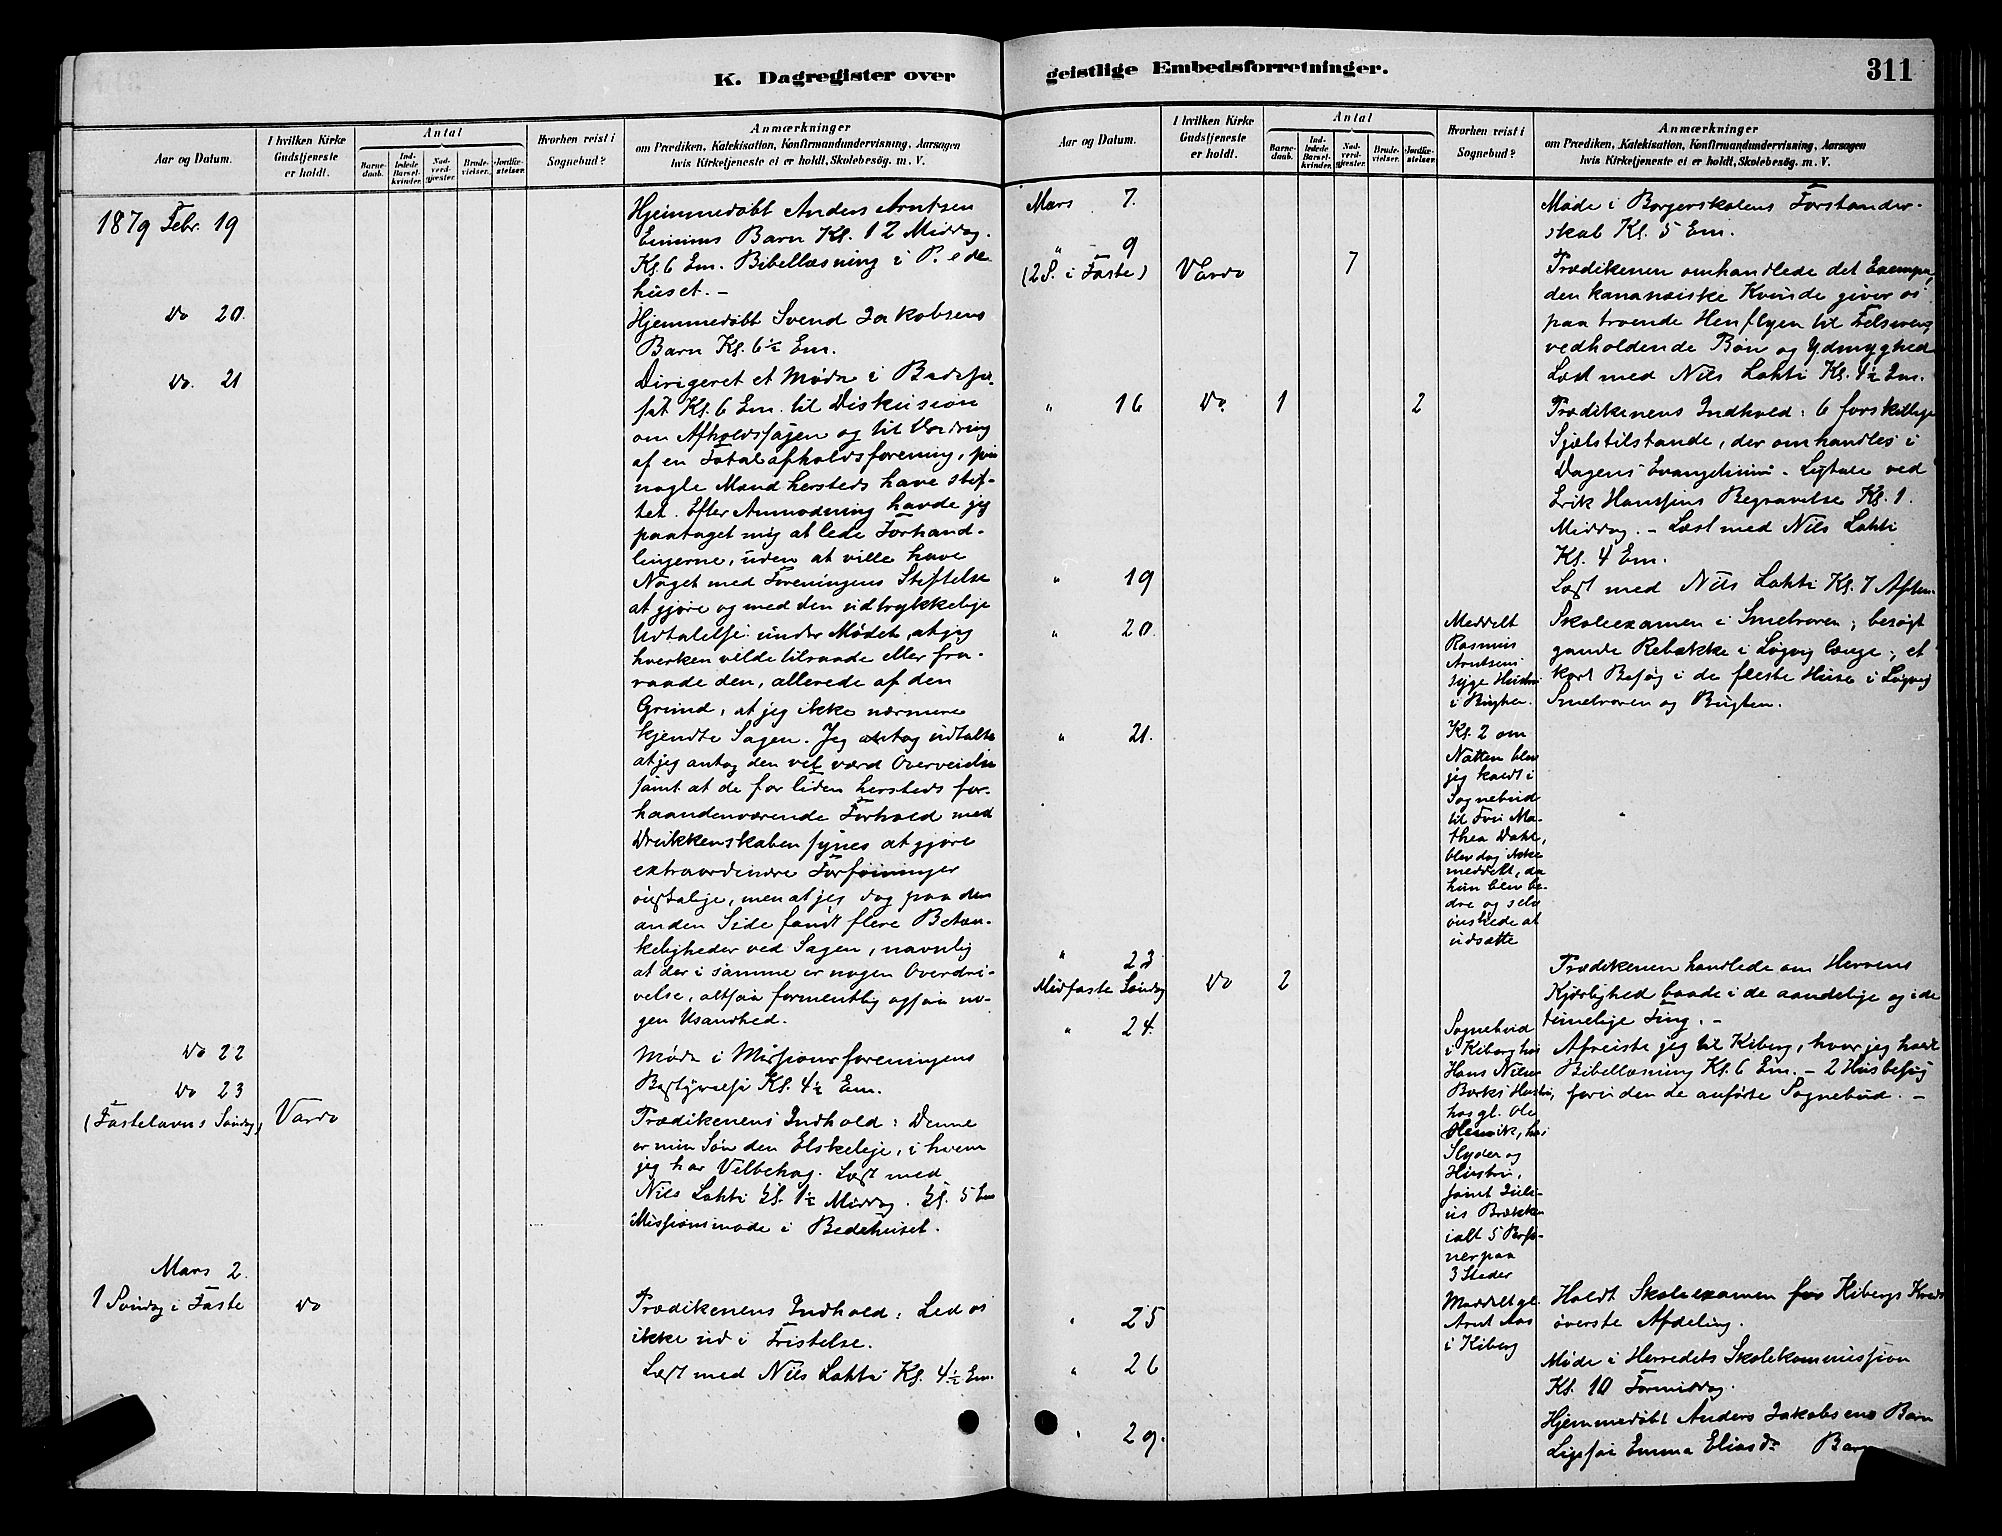 K. Dagregister over
Aar og Datum.
I hvilken Kirke
Gudstjeneste
er holdt.
Antal
Barne-
daab.
Ind-
ledede
Barsel-
kvinder.
Nad-
verd-
gjæster.
Brude-
vielser.
Jordfæ-
stelser.
Hvorhen reist i
Sognebud?
Anmærkninger
om Prædiken, Katekisation, Konfirmandundervisning, Aarsagen
hvis Kirketjeneste ei er holdt, Skolebesög. m. V.
1879 Febr. 19
Hjemmedøbt Anders Arntsen
Barn Kl. 12 Middag.
Kl. 6 Em. Bibellæsning i
huset. –
Do 20.
Hjemmedøbt Svend Jakobsens
Barn Kl. 6½ Em.
Do. 21
Dirigeret et Møde i
Kl. 6 Em. til Diskussion
om Afholdssagen og til
af en Totalafholdsforening, som
nogle Mænd hersteds have stif-
tet. Efter Anmodning havde jeg
paataget mig at lede Forhand-
lingerne, uden at ville have
Noget med Foreningens Stiftelse
at gjøre og med den udtrykkelige
Udtalelse under Mødet, at jeg
hverken vilde tilraade eller fra-
raade den, allerede af den
Grund, at jeg ikke nærmere
kjendte Sagen. Jeg udtalte
at jeg antog den vel værd Overveielse
samt at de for Tiden hersteds for-
haandenværende Forhold med
Drikkenskaben synes at gjøre
extraordinære Forføininger
ønskelige, men at jeg dog paa den
anden Side fandt flere Betæn-
keligheder ved Sagen, navnlig
at der i samme er nogen Overdri-
velse, altsaa formentlig ogsaa no-
gen Usandhed.
Do 22
Møde i Missionsforeningens
Bestyrelse Kl. 4½ Em.
Do 23
(Fastelavns Søndag) Vardø
Prædikenens Indhold: Denne
er min Søn den Elskelige, i hvem
jeg har Velbehag. Læst med
Nils Lahti Kl. 1½ Middag. Kl. 5 Em
Missionsmøde i Bedehuset.
Mars 2.
1 Søndag i Faste do
Prædikenens Indhold: Led os
ikke ud i Fristelse.
Læst med Nils Lahti Kl. 4½ Em.
geistlige Embedsforretninger.
311
Aar og Datum.
I hvilken Kirke
Gudstjeneste
er holdt.
Antal
Barne-
daab.
Ind-
ledede
Barsel-
kvinder.
Nad-
verd-
gjæster.
Brude-
vielser.
Jordfæ-
stelser.
Hvorhen reist i
Sognebud?
Anmærkninger
om Prædiken, Katekisation, Konfirmandundervisning, Aarsagen
hvis Kirketjeneste ei er holdt, Skolebesög. m. V.
Mars 7.
Møde i Borgerskolens Forstander-
skab Kl. 5 Em.
" 9
(2 S. i Faste) Vardø 7
Prædikenen omhandlede det Exempel,
den kananæiske Kvinde giver os
paa troende Henflyen til Frelseren,
vedholdende Bøn og Ydmyghed
Læst med Nils Lahti Kl. 4½ Em.
" 16 Do. 1 2
Prædikenens Indhold: 6 forskellige
Sjælstilstande, der omhandles i
Dagens Evangelium. Ligtale ved
Erik Hanssens Begravelse Kl. 1.
Middag. – Læst med Nils Lahti
Kl. 4 Em.
" 19
Læst med Nils Lahti Kl. 7 Aften.
" 20.
Meddelt
Rasmus
Arntsens
syge Hustru
i Bugten.
Skoleexamen i Smelroren; besøgt
gamle Rebække i længe; et
kort Besøg i de fleste Huse i
Smelroren og Bugten.
" 21.
Kl. 2 om
Natten blev
jeg kaldt i
Sognebud
til Fru Ma-
thea Dahl,
blev dog ikke
meddelt, da
hun blev be-
dre og selv
ønskede at
udsætte
" 23
Midfaste Søndag Do 2
Prædikenen handlede om Herrens
Kjærlighed baade i de aandelige og i de
timelige Ting. –
" 24.
Sognebud
i Kiberg hos
Hans Nilsen
Borks Hustru,
hos gl. Ole
Henrik, hos
Slyder og
Hustru,
samt Juli-
us Brækken
ialt 5 Perso-
ner paa
3 Steder
Afreiste jeg til Kiberg, hvor jeg holdt
Bibellæsning Kl. 6 Em. – 2 Husbesøg
foruden de anførte Sognebud. –
" 25
Meddelt gl.
Arnt Aas
i Kiberg
Holdt Skoleexamen for Kibergs Kreds
øverste Afdeling.
" 26
Møde i Herredets Skolekommission
Kl. 10 Formiddag.
" 29.
Hjemmedøbt Anders Jakobsens Barn
Ligesaa Emma Eliasdr